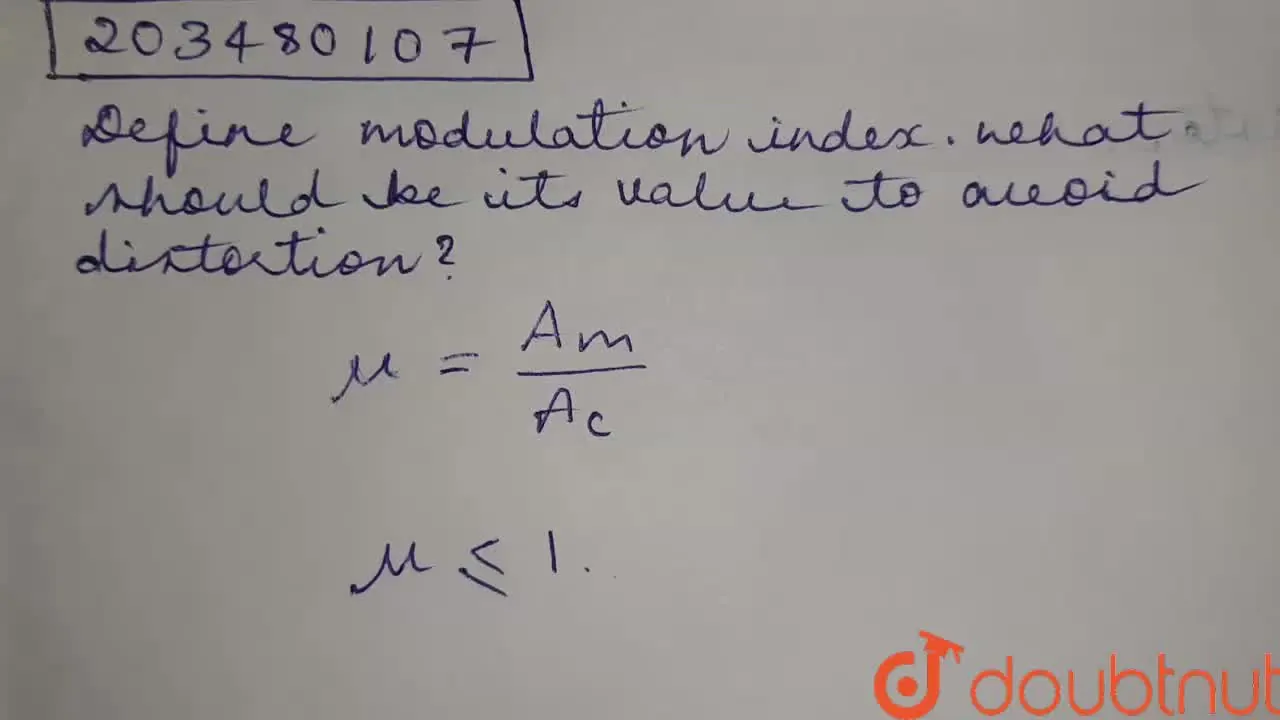 203480107
Define modulation index. what
should be its value to avoid
distortion?
μ = Am / Ac
μ ≤ 1.
doubtnut